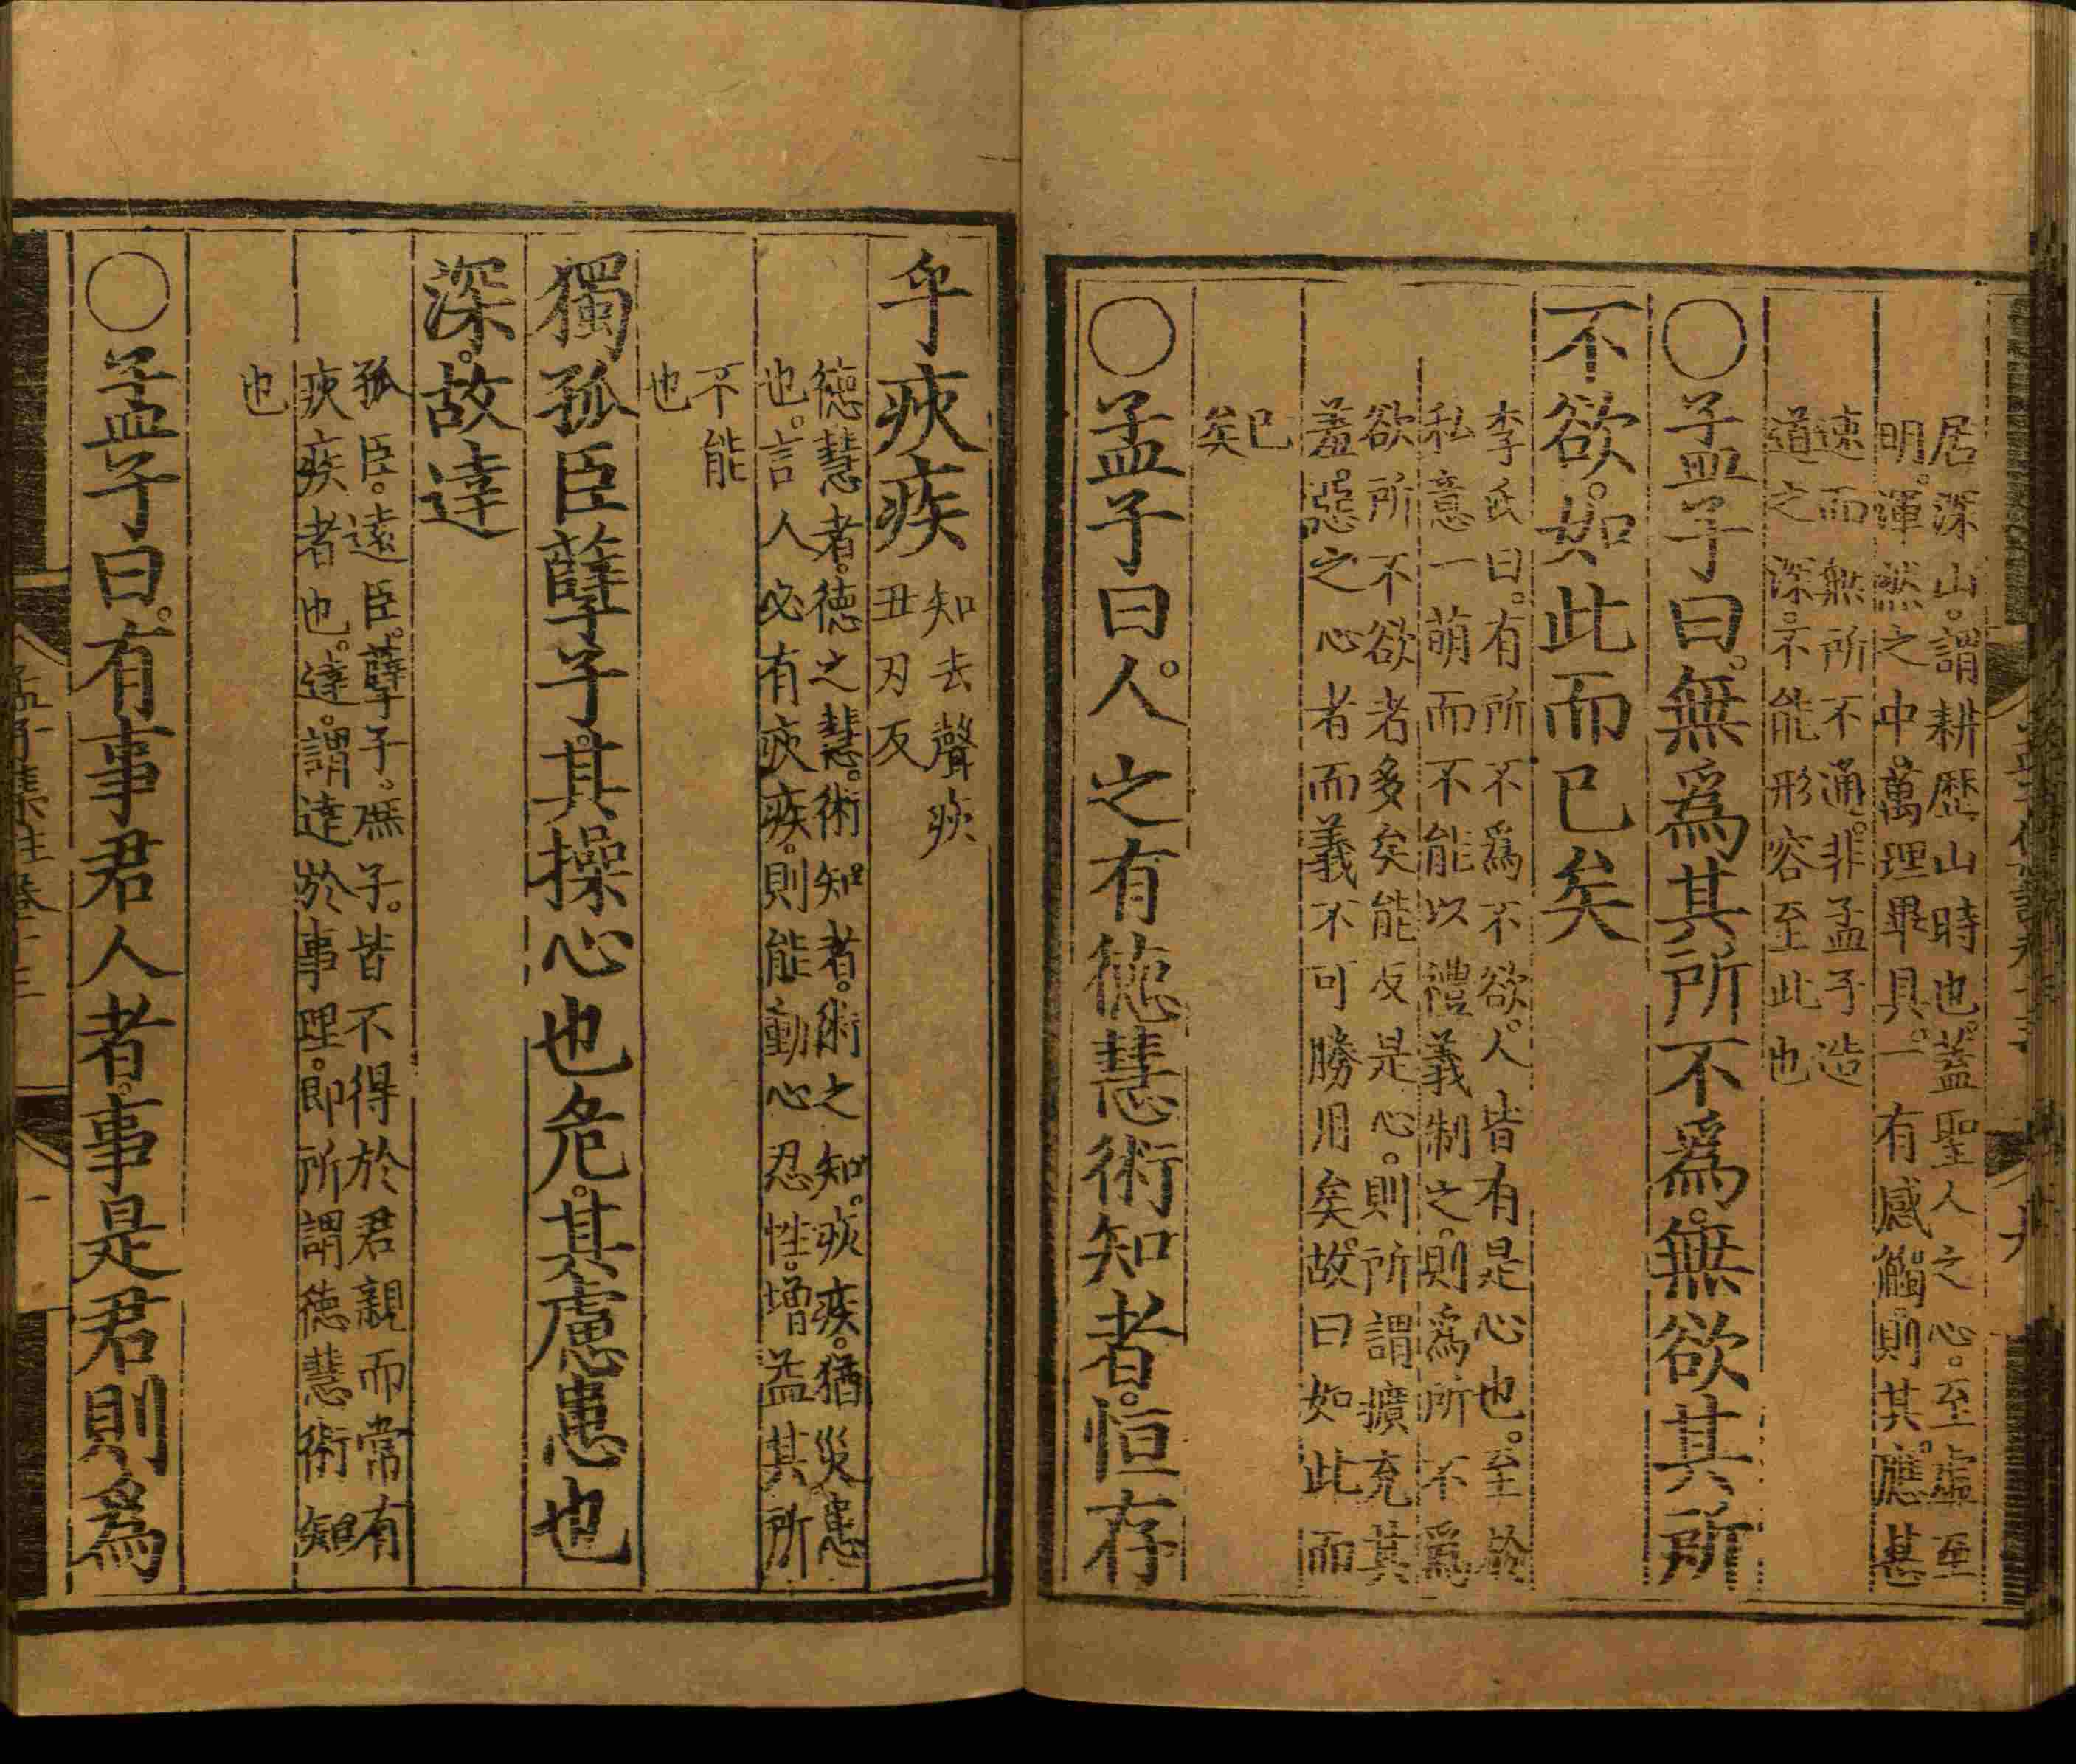 居深山。謂耕歷山時也。蓋聖人之心。至虛至
明。渾然之中。萬理畢具。一有感觸。則其應甚
速而無所不通。非孟子造
道之深。不能形容至此也
〇孟子曰。無爲其所不爲。無欲其所
不欲。如此而已矣
李氏曰。有所不爲不欲。人皆有是心也。至於
私意一萌而不能以禮義制之。則爲所不爲
欲所不欲者多矣能反是心。則所謂擴充其
羞惡之心者而義不可勝用矣。故曰如此而
已
矣
〇孟子曰。人之有德慧術知者。恒存
乎疢疾
知去聲疢
丑刃反
德慧者。德之慧。術知者。術之知。疢疾。猶災患
也。言人必有疢疾。則能動心忍性。增益其所
不能
也
獨孤臣孽子。其操心也危。其慮患也
深。故達
孤臣。遠臣。孽子。庶子。皆不得於君親而常有
疢疾者也。達。謂達於事理。即所謂德慧術知
也
〇孟子曰。有事君人者。事是君則爲